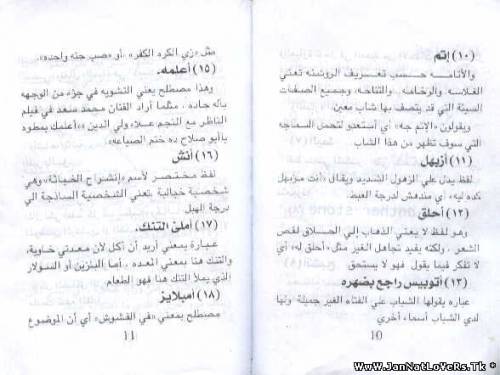 (١٠) إتم
والأتامه حسب تعريف الروشنه تعني
الغلاسه والرخامه، والتناحه، وجميع الصفات
السيئة التي قد يتصف بها شاب معين.
ويقولون «الإتم جه» أي أستعدو لتحمل السماجه
التي سوف تظهر من هذا الشاب
(١١) أزبهل
لفظ يدل علي الزهول الشديد ويقال «أنت مزبهل
كده ليه» أي مندهش لدرجة العبط.
(١٢) أحلق
وهو لفظ لا يعني الذهاب إلي الحلاق لقص
الشعر، ولكنه يفيد تجاهل الغير مثل «أحلق له» أي
لا تفكر فيما يقول فهو لا يستحق
(١٣) أتوبيس راجع بضهره
عباره يقولها الشباب علي الفتاه الغير جميلة ولها
لدي الشباب أسماء أخري
10
مثل «زي الكره الكفر»، أو «صب حته واحده».
(١٥) أعلمه.
وهذا مصطلح يعني التشويه في جزء من الوجهه
بآله حاده، مثلما أراد الفنان محمد سعد في فيلم
الناظر مع النجم علاء ولي الدين «أعلمك بمطوه
يابو صلاح ده ختم الصياعه».
(١٦) أنش
لفظ مختصر لأسم «إنشراح الخباثة» وهي
شخصية خيالية بتعني الشخصية الساذجة الي
درجة الهبل
(١٧) أملئ التنك.
عبارة بمعني أريد أن أكل لأن معدتي خاوية،
والتنك هنا بمعني المعده، أما البنزين أو السولار
الذي يملأ التنك هنا فهو الطعام
(١٨) امبلايز
مصطلح بمعني «في الفشوش» أي أن الموضوع
11
Www.JanNatLoVeRs.Tk *